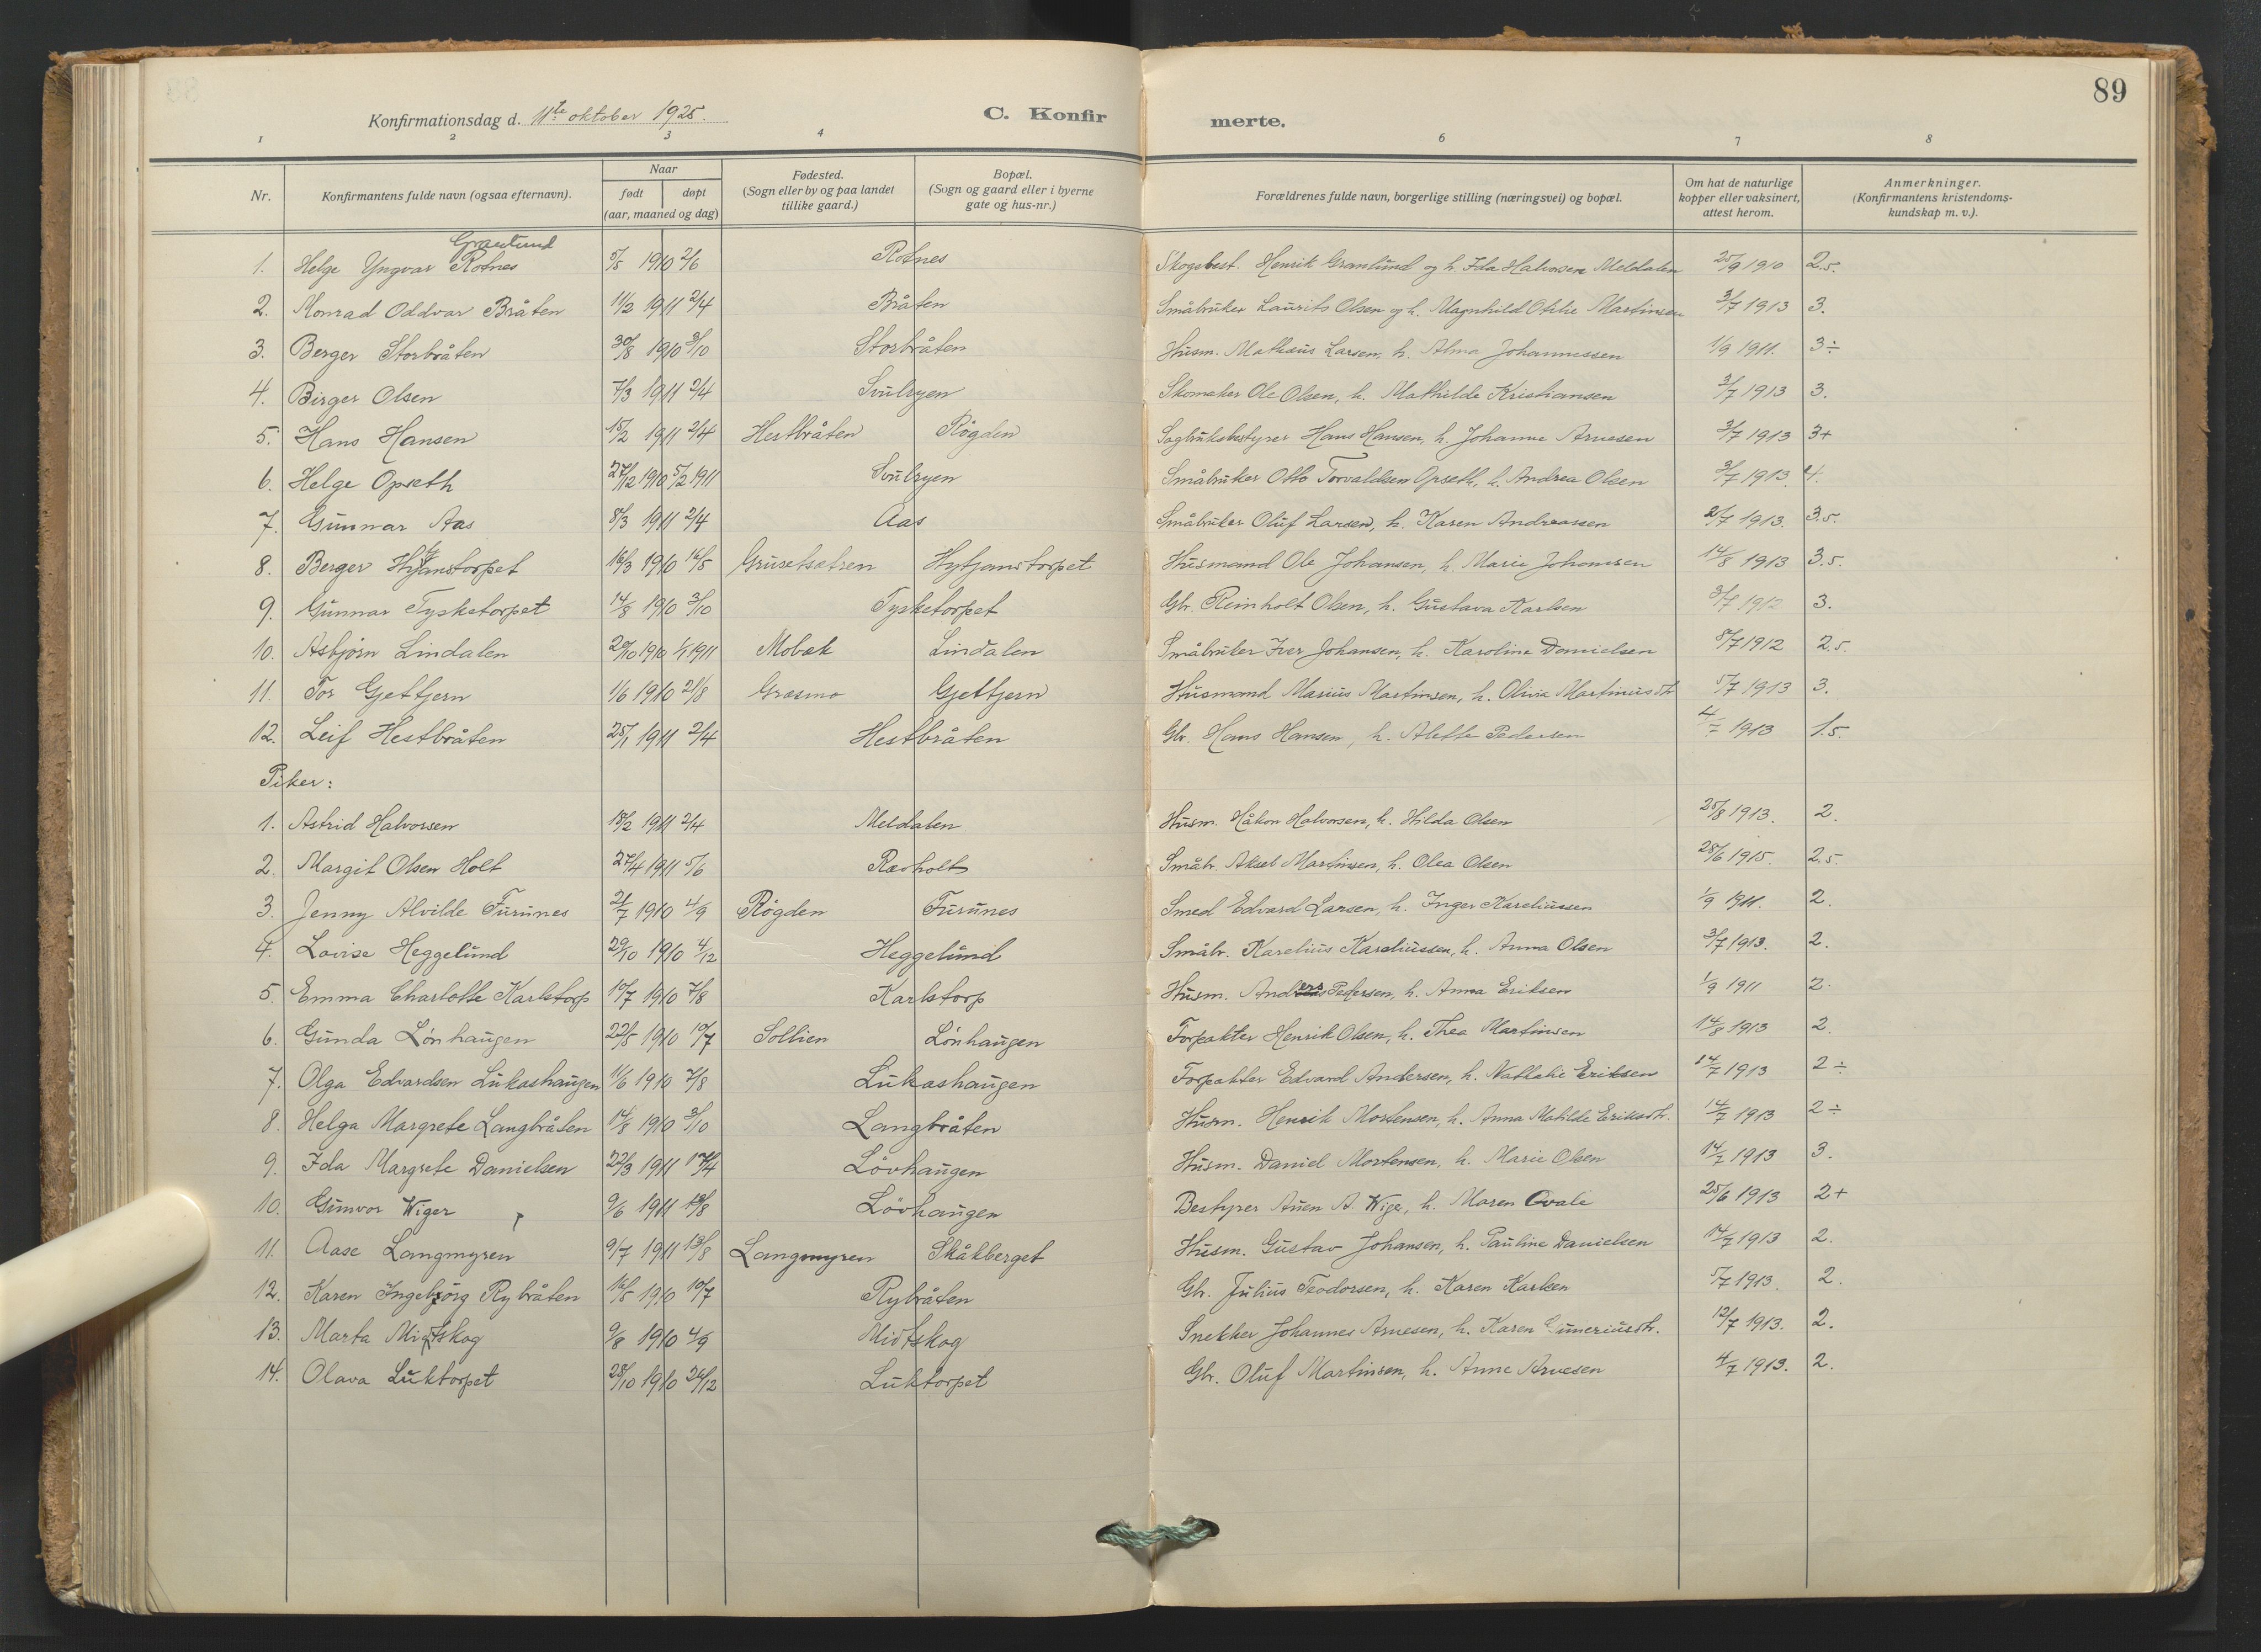 89
Konfirmationsdag d. 11te oktober 1925.
C. Konfirmerte.
1 2 3 4 6 7 8
Nr. | Konfirmantens fulde navn (ogsaa efternavn). | Naar født døpt (aar, maaned og dag) | Fødested. (Sogn eller by og paa landet tillike gaard.) | Bopæl. (Sogn og gaard eller i byerne gate og hus-nr.) | Forældrenes fulde navn, borgerlige stilling (næringsvei) og bopæl. | Om hat de naturlige kopper eller vaksinert, attest herom. | Anmerkninger. (Konfirmantens kristendomskundskap m. v.).
Granlund
1. Helge Yngvar Rotnes 5/5 1910 2/6 Rotnes Skogsbest. Henrik Granlund og h. Ida Halvorsen Meldalen 25/9 1910 2.5.
2. Konrad Oddvar Bråten 11/2 1911 2/4 Bråten Småbruker Laurits Olsen og h. Magnhild Otilie Martinsen 3/7 1913 3.
3. Berger Storbråten 30/8 1910 3/10 Storbråten Husm. Mathæus Larsen, h. Alma Johannessen 1/9 1911. 3÷
4. Birger Olsen 7/3 1911 2/4 Svulryen Skomaker Ole Olsen, h. Mathilde Kristiansen 3/7 1913 3.
5. Hans Hansen 15/2 1911 2/4 Hestbråten Røgden Sagbruksbestyrer Hans Hansen, h. Johanne Arnesen 3/7 1913 3+
6. Helge Opseth 27/12 1910 5/2 1911 Svulryen Småbruker Otto Torvaldsen Opseth, h. Andrea Olsen 3/7 1913. 4.
7. Gunnar Aas 8/3 1911 2/4 Aas Småbruker Oluf Larsen, h. Karen Andreassen 2/7 1913. 3.5.
8. Berger Hytjanstorpet 16/3 1910 16/5 Grusetsætren Hytjanstorpet Husmand Ole Johansen, h. Marie Johansen 14/8 1913 3.5.
9. Gunnar Tysketorpet 14/8 1910 3/10 Tysketorpet Gbr. Reinholt Olsen, h. Gustava Karlsen 3/7 1912 3.
10. Asbjørn Lindalen 20/10 1910 1/1 1911 Mobæk Lindalen Småbruker Iver Johansen, h. Karoline Danielsen 8/7 1912 2.5.
11. Tor Gjettjern 1/6 1910 21/8 Græsmo Gjettjern Husmand Marius Martinsen, h. Olivia Martinusdtr 5/7 1913 3.
12. Leif Hestbråten 25/1 1911 2/4 Hestbråten Gbr. Hans Hansen, h. Alette Pedersen 4/7 1913 1.5.
Piker:
1. Astrid Halvorsen 18/2 1911 2/4 Meldalen Husm. Håkon Halvorsen, h. Hilda Olsen 25/8 1913. 2.
2. Margit Olsen Holt 27/4 1911 5/6 Rævholt Småbr. Aksel Martinsen, h. Olea Olsen 28/6 1915. 2.5.
3. Jenny Alvilde Furunes 21/7 1910 4/9 Røgden Furunes Smed Edvard Larsen, h. Inger Kareliussen 1/9 1911. 2.
4. Lovise Heggelund 29/10 1910 4/12 Heggelund Småbr. Karelius Kareliussen, h. Anna Olsen 3/7 1913. 2.
5. Emma Charlotte Karlstorp 10/7 1910 7/8 Karlstorp Husm. Anders Pedersen, h. Anna Eriksen 1/9 1911 2.
6. Gunda Lønhaugen 22/5 1910 10/7 Sollien Lønhaugen Forpakter Henrik Olsen, h. Thea Martinsen 14/8 1913 2.
7. Olga Edvardsen Lukashaugen 11/6 1910 7/8 Lukashaugen Forpakter Edvard Andersen, h. Nathalie Eriksen 14/7 1913 2÷
8. Helga Margrete Langbråten 14/8 1910 3/10 Langbråten Husm. Henrik Mortensen, h. Anna Matilde Eriksdtr. 14/7 1913 2÷
9. Ida Margrete Danielsen 22/3 1911 17/4 Løvhaugen Husm. Daniel Mortensen, h. Marie Olsen 14/7 1913 3.
10. Gunvor Wiger 9/6 1911 13/8 Løvhaugen Bestyrer Auen A. Wiger, h. Maren Ovale 25/6 1913 2+
11. Aase Langmyren 9/7 1911 13/8 Langmyren Skåkberget Husm. Gustav Johansen, h. Pauline Danielsen 14/7 1913 2.
12. Karen Ingebjørg Rybråten 16/5 1910 10/7 Rybråten Gbr. Julius Teodorsen, h. Karen Karlsen 5/7 1913. 2.
13. Marta Midtskog 9/8 1910 4/9 Midtskog Snekker Johannes Arnesen, h. Karen Gunneriusdtr. 12/7 1913. 2.
14. Olava Luktorpet 28/10 1910 26/12 Luktorpet Gbr. Oluf Martinsen, h. Anne Arnesen 4/7 1913. 2.